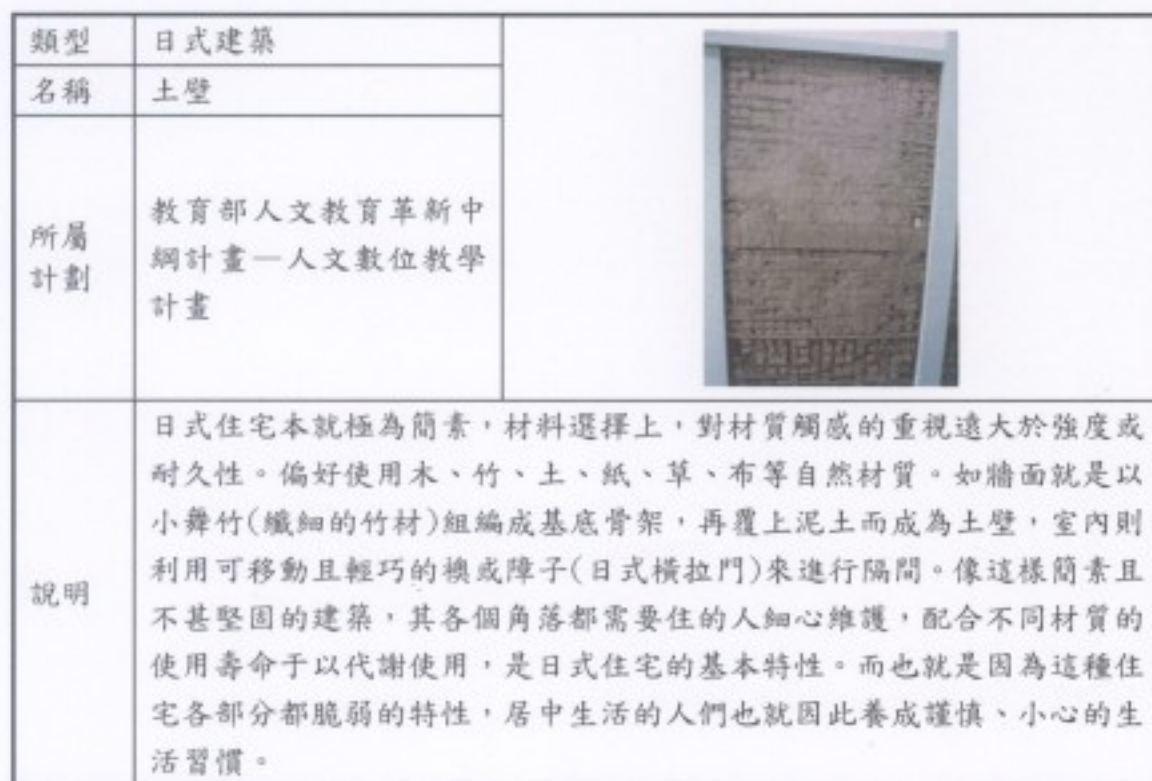 類型 日式建築
名稱 土壁
所屬
計劃
教育部人文教育革新中
綱計畫—人文數位教學
計畫
說明
日式住宅本就極為簡素,材料選擇上,對材質觸感的重視遠大於強度或
耐久性。偏好使用木、竹、土、紙、草、布等自然材質。如牆面就是以
小舞竹(纖細的竹材)組編成基底骨架,再覆上泥土而成為土壁,室內則
利用可移動且輕巧的襖或障子(日式橫拉門)來進行隔間。像這樣簡素且
不甚堅固的建築,其各個角落都需要住的人細心維護,配合不同材質的
使用壽命于以代謝使用,是日式住宅的基本特性。而也就是因為這種住
宅各部分都脆弱的特性,居中生活的人們也就因此養成謹慎、小心的生
活習慣。